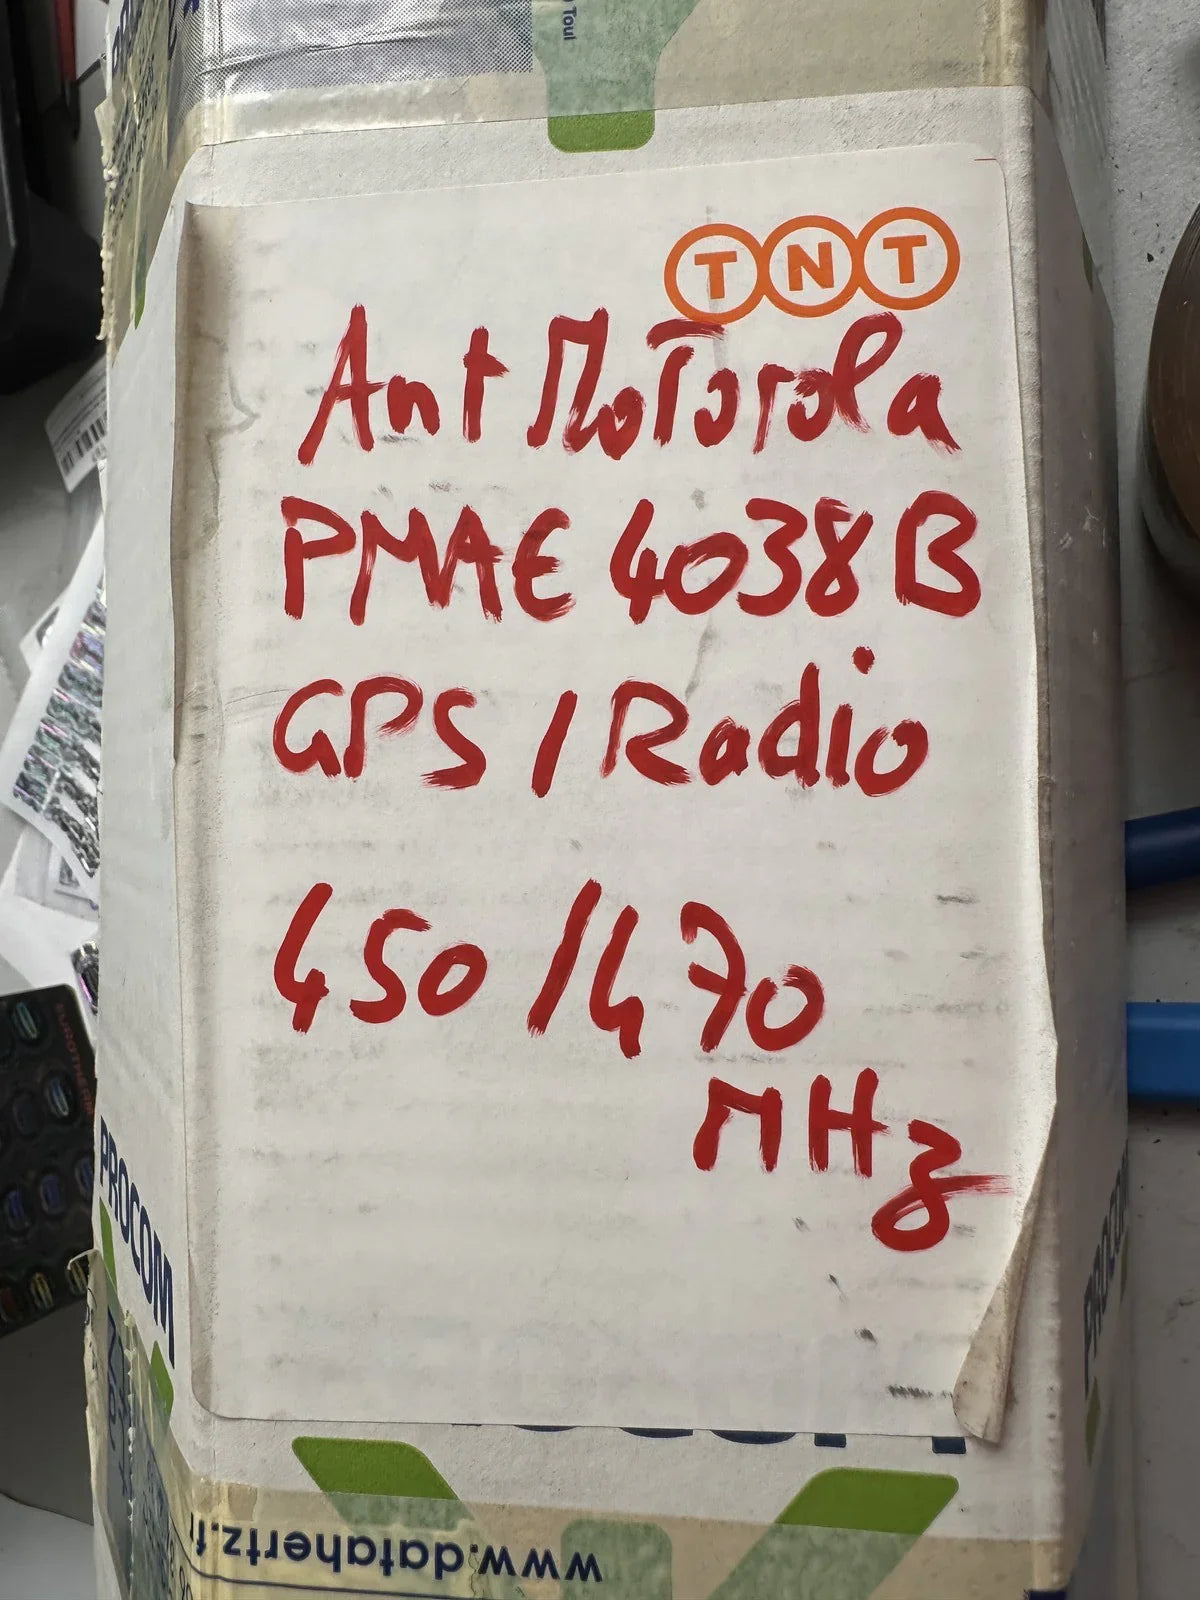 Toul
TNT
Ant MoTorola
PMAE 4038B
GPS / Radio
450 / 470
MHz
EUROTHERM
PROCOM
www.datahertz.fr